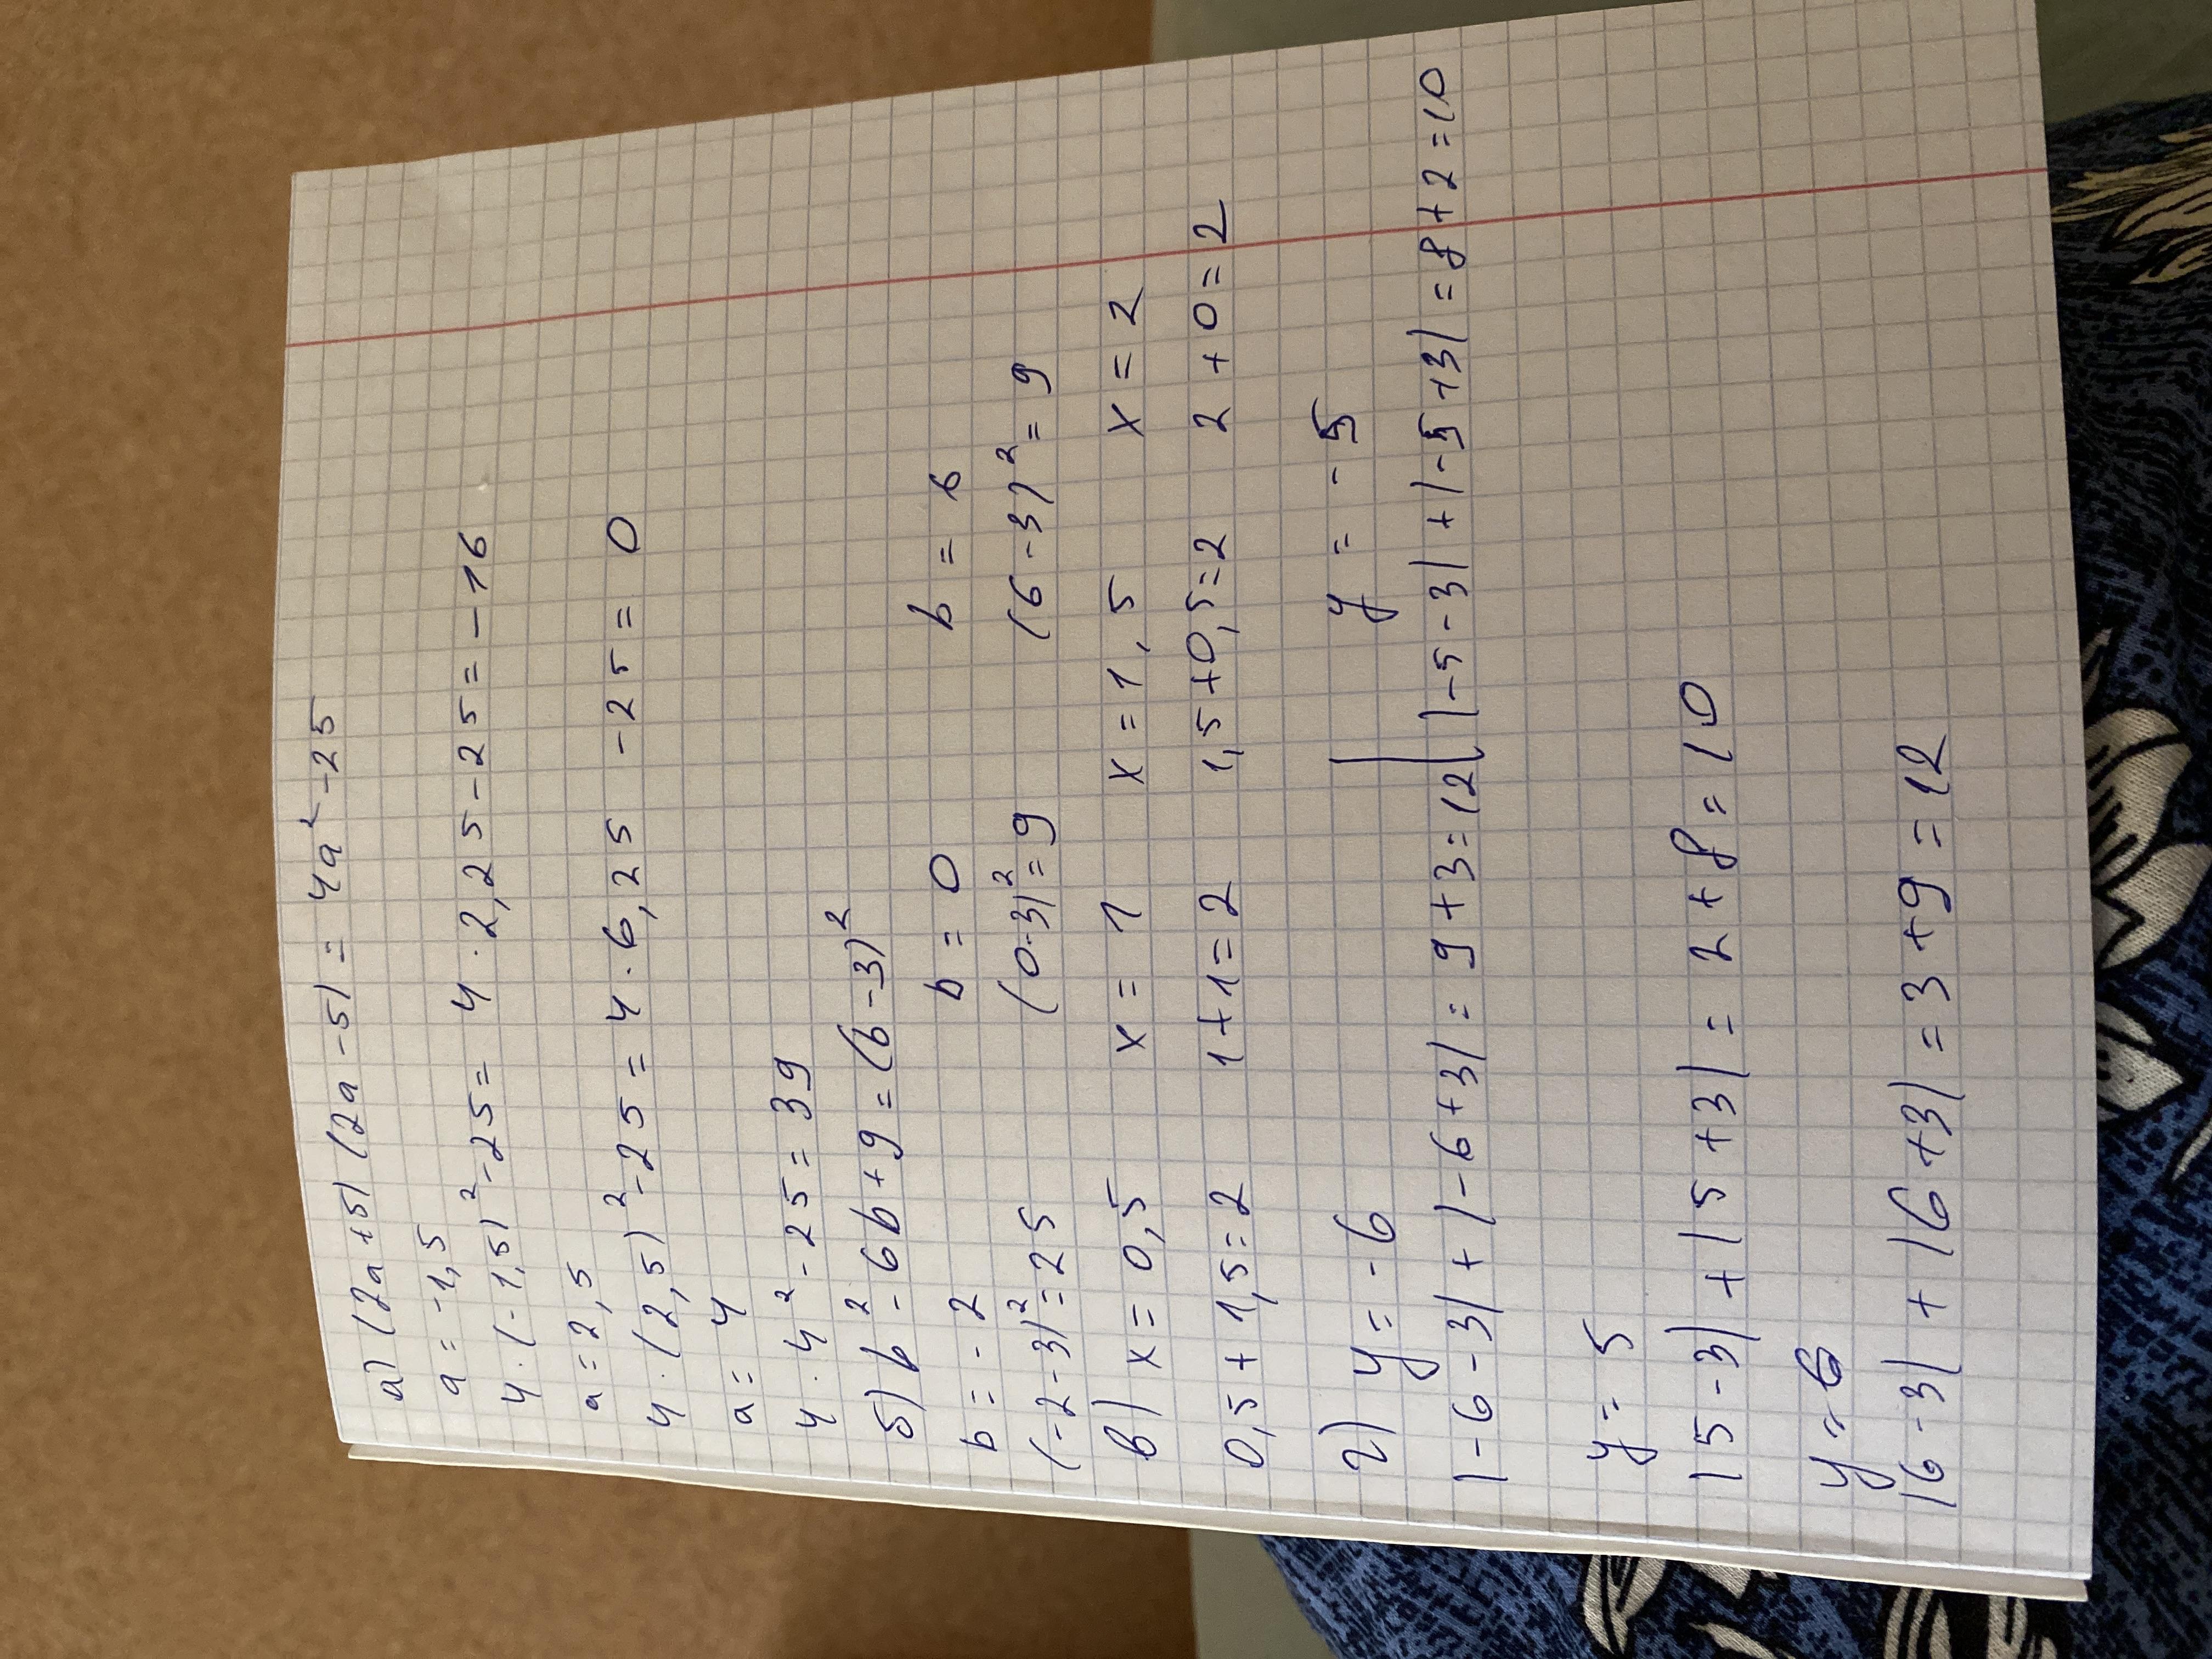 а) (2a+5) (2a-5) = 4a² -25
a = -1,5
4·(-1,5)²-25 = 4·2,25-25=-16
a = 2,5
4·(2,5)²-25 = 4·6,25 -25 = 0
a = 4
4·4²-25=39
б) b²-6b+9=(b-3)²
b = -2 b = 0 b = 6
(-2-3)²=25 (0-3)²=9 (6-3)²=9
в) x = 0,5 x = 1 x = 1,5 x = 2
0,5+1,5=2 1+1=2 1,5+0,5=2 2+0=2
г) y = -6 y = -5
|-6-3|+|-6+3|=9+3=12 |-5-3|+|-5+3|=8+2=10
y = 5
|5-3|+|5+3|=2+8=10
y = 6
|6-3|+|6+3|=3+9=12